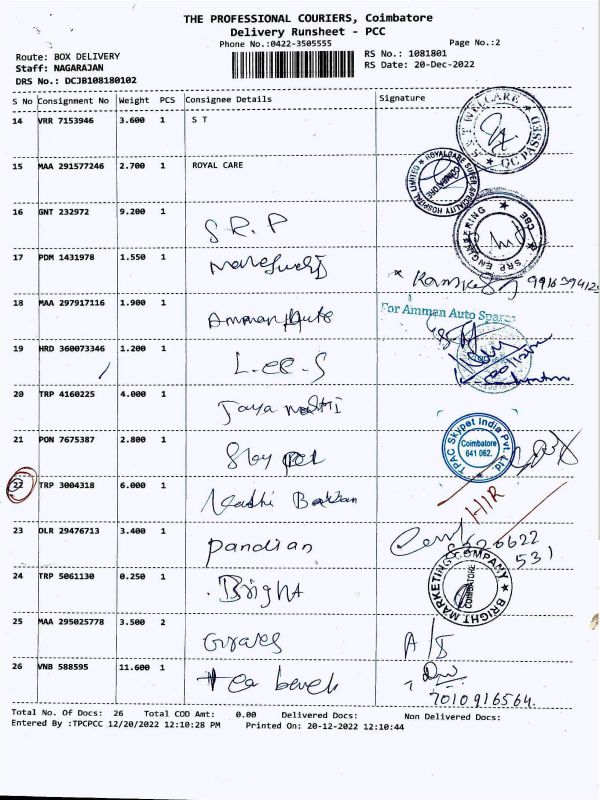 THE PROFESSIONAL COURIERS, Coimbatore
Delivery Runsheet - PCC
Phone No.:0422-3505555
Page No.:2
Route: BOX DELIVERY
RS No.: 1081801
Staff: NAGARAJAN
RS Date: 20-Dec-2022
DRS No.: DCJB108180102
S No Consignment No Weight PCS Consignee Details Signature
14 VRR 7153946 3.600 1 S T
S T WELCARE QC PASSED
15 MAA 291577246 2.700 1 ROYAL CARE
ROYALCARE SUPER SPECIALITY HOSPITAL LIMITED COIMBATORE
16 GNT 232972 9.200 1 S.R.P
SRP ENGINEERING CBE
17 PDM 1431978 1.550 1
18 MAA 297917116 1.900 1 Amman Auto
For Amman Auto Spares
19 HRD 360073346 1.200 1 L.ee.S
20 TRP 4160225 4.000 1 Jaya
21 PON 7675387 2.800 1 Sky pet
TPAC Skypet India Pvt. Ltd. Coimbatore 641 062.
22 TRP 3004318 6.000 1
HIR
23 DLR 29476713 3.400 1 Pandian
8220622
531
24 TRP 5061130 0.250 1 Bright
BRIGHT MARKETING COMPANY COIMBATORE
25 MAA 295025778 3.500 2
26 VNB 588595 11.600 1 Tea
7010916564.
Total No. Of Docs: 26 Total COD Amt: 0.00 Delivered Docs: Non Delivered Docs:
Entered By :TPCPCC 12/20/2022 12:10:28 PM Printed On: 20-12-2022 12:10:44